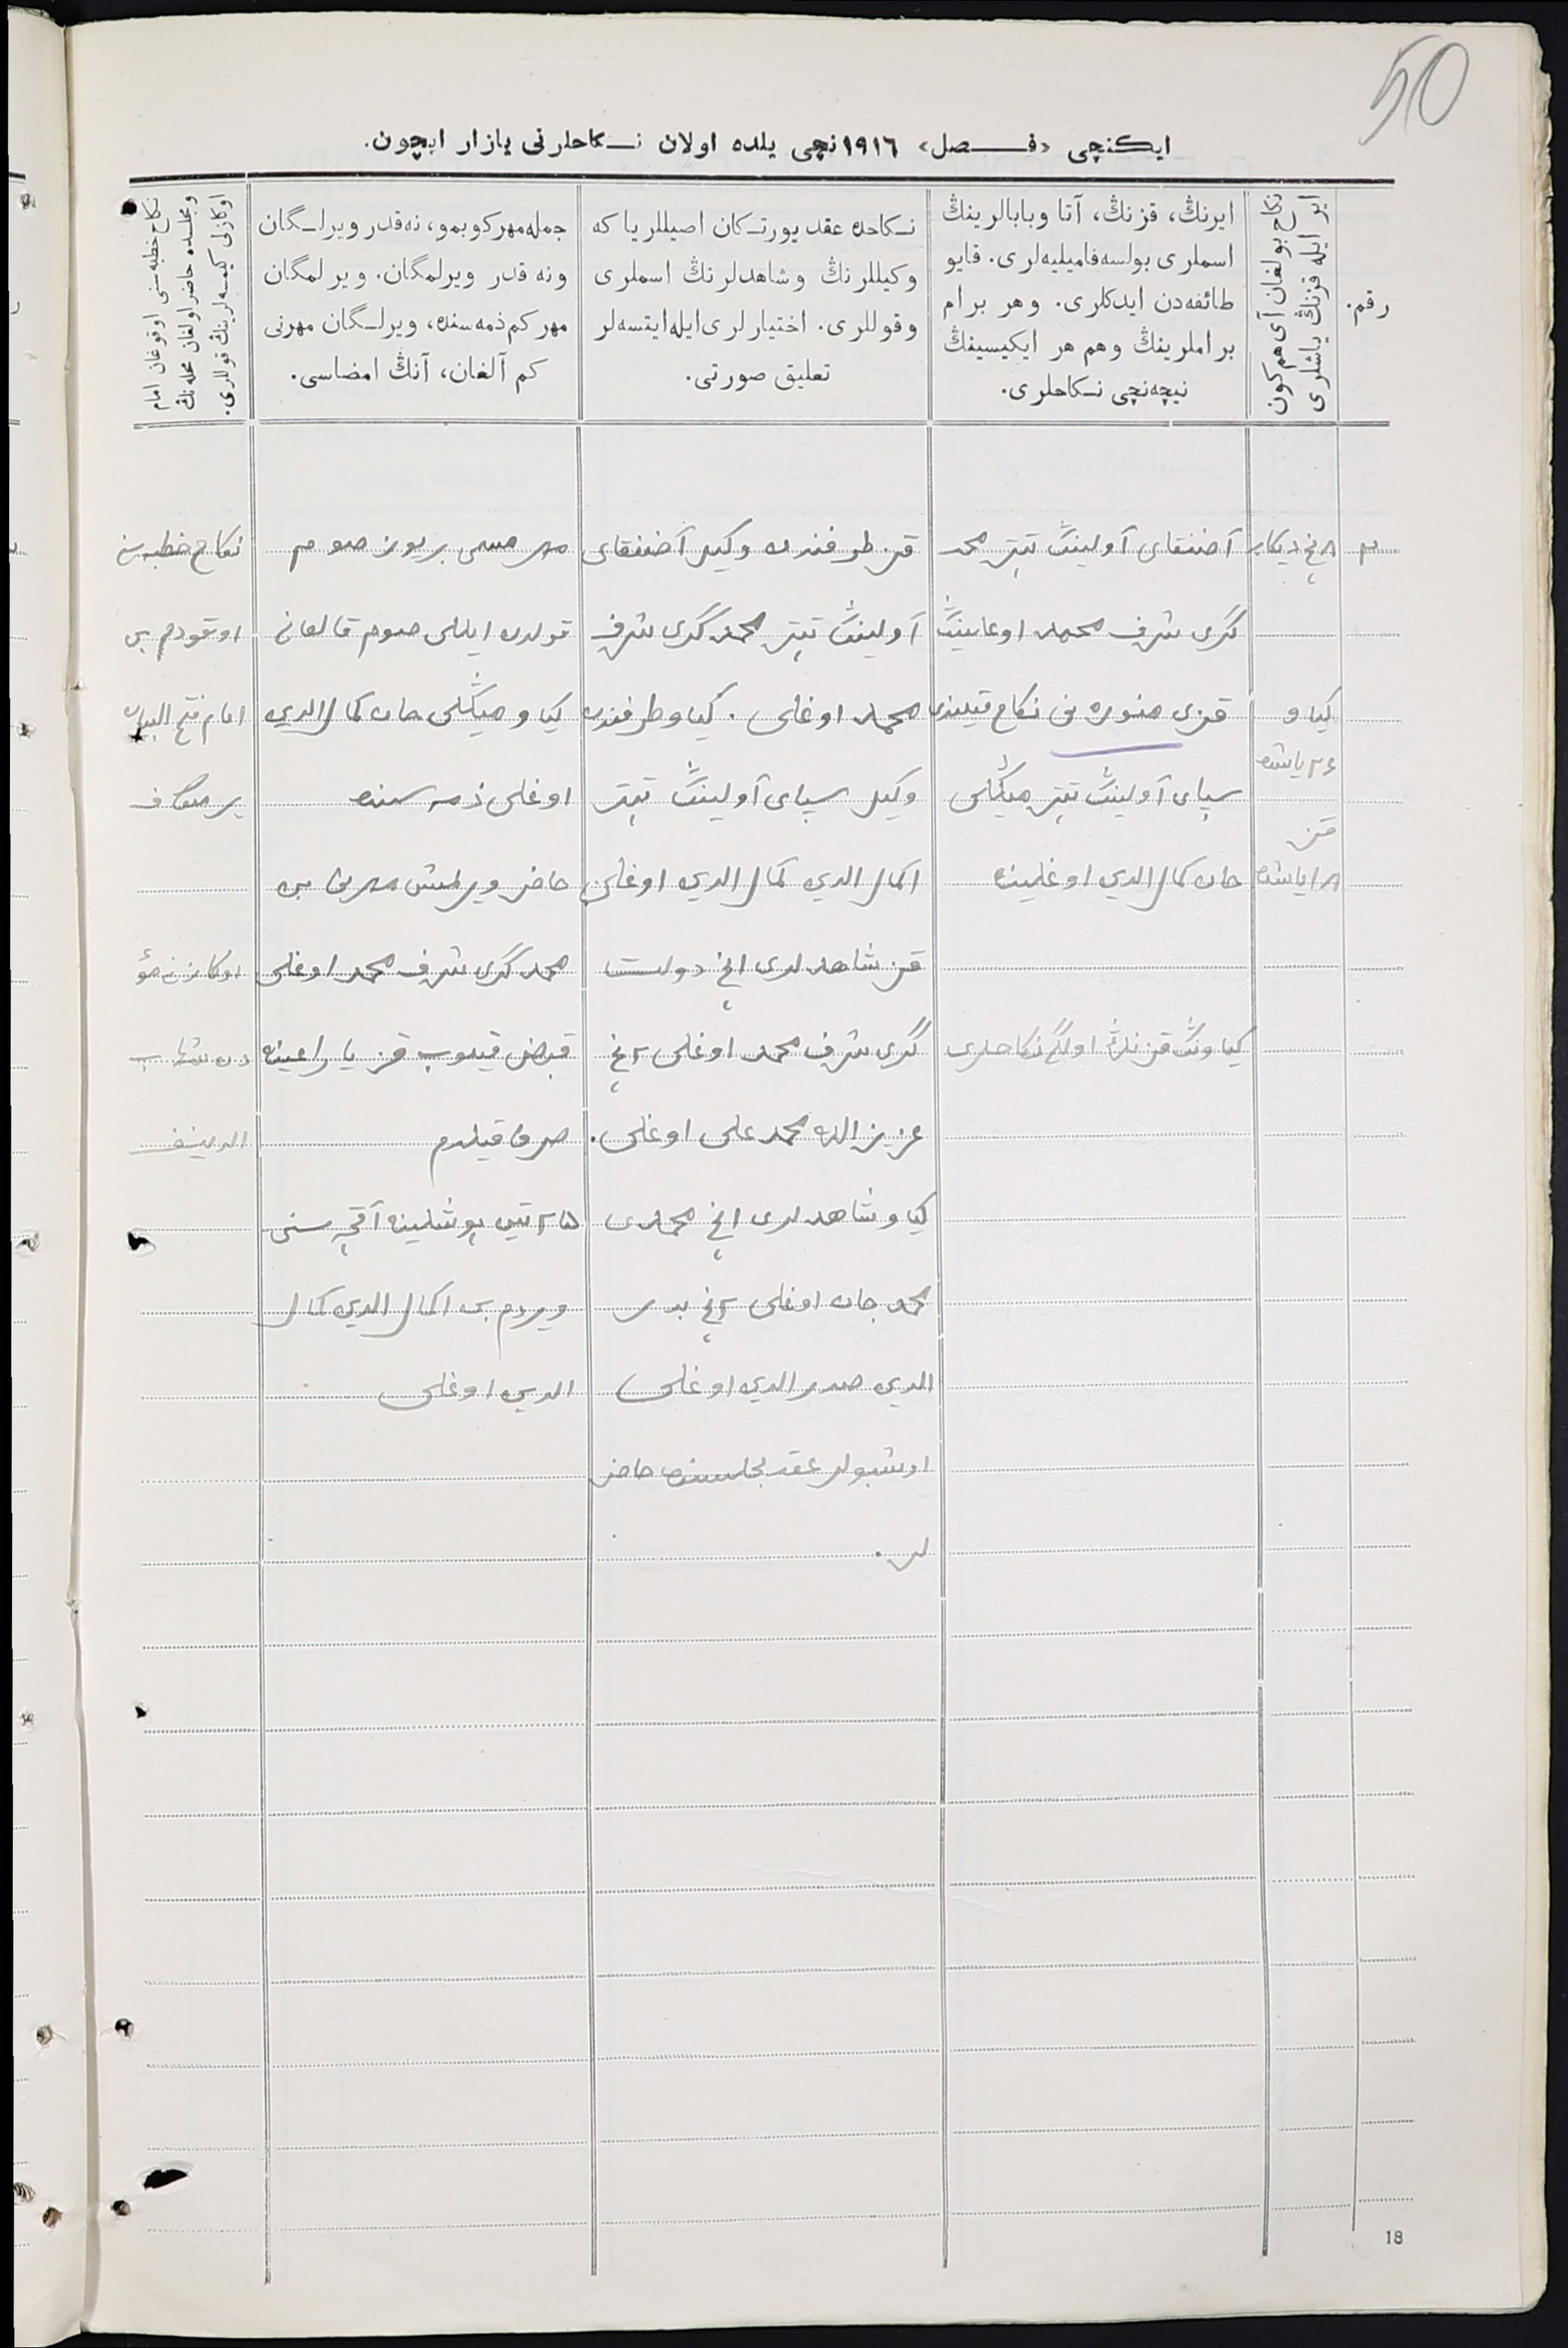 50
ایكنچی «فـصل» ١٩١٦نچی یلده اولان نـكاحلرنی یازار ایچون.
رقم.
نكاح بولغان آی هم كون
ایر ایله قزنڭ یاشلری
ایرنڭ، قزنڭ، آتا وبابالرینڭ
اسملری بولسه فامیلیه‌لری. قایو
طائفه‌دن ایدكلری. وهر برام
براملرینڭ وهم هر ایكیسینڭ
نیچه‌نچی نـكاحلری.
نـكاحده عقد یورتـكان اصیللر یا كه
وكیللرنڭ وشاهدلرنڭ اسملری
وقوللری. اختیارلری ایله ایتسه‌لر
تعلیق صورتی.
جمله مهر كوبمو، نه‌قدر ویرلـگان
ونه قدر ویرلمگان. ویرلمگان
مهر كم ذمه‌سنده، ویرلـگان مهرنی
كم آلغان، آنڭ امضاسی.
نكاح خطبه‌سنی اوقوغان امام
ومجلسده حاضر اولغان محله‌نڭ
اوكازلی كیمسه‌لرینڭ قوللری.
٨ نچی دیكابر
كیاو
٢٤ یاشده
قز
١٨ یاشده
آضنقای آولینڭ تپتر محمد
گری شرف محمد اوغلینڭ
قزی منوره نی نكاح قیلیندی
سپای آولینڭ تپتر میڭلی
جان كمال الدین اوغلینه
كیاونڭ قزنڭ اولگی نكاحلری
قز طرفندن وكیل آضنقای
آولینڭ تپتر محمد گری شرف
محمد اوغلی. كیاو طرفندن
وكیل سپای آولینڭ تپتر
اكمال الدین كمال الدین اوغلی
قز شاهدلری ١نچی دولت
گری شرف محمد اوغلی ٢نچی
عزیز الله محمد علی اوغلی.
كیاو شاهدلری ١نچی محمدی
محمد جان اوغلی ٢نچی بدر
الدین صدر الدین اوغلی
اوشبولر عقد مجلسنده حاضر
لر.
مهر مسمی بر یوز صوم
قولده ایللی صوم قالغان
كیاو میڭلی جان كمال الدین
اوغلی ذمه سنده
حاضر ویرلمش مهرنی بن
محمد گری شرف محمد اوغلی
قبض قیلوب قز یاراغینه
صرف قیلدم
٢٥ تین پوشلینه آقچه سنی
ویردم بن اكمال الدین كمال
الدین اوغلی
نكاح خطبه سن
اوقودم بن
امام فتح البیان
اوكازنی مؤ
ذن شهاب
الدینف
18